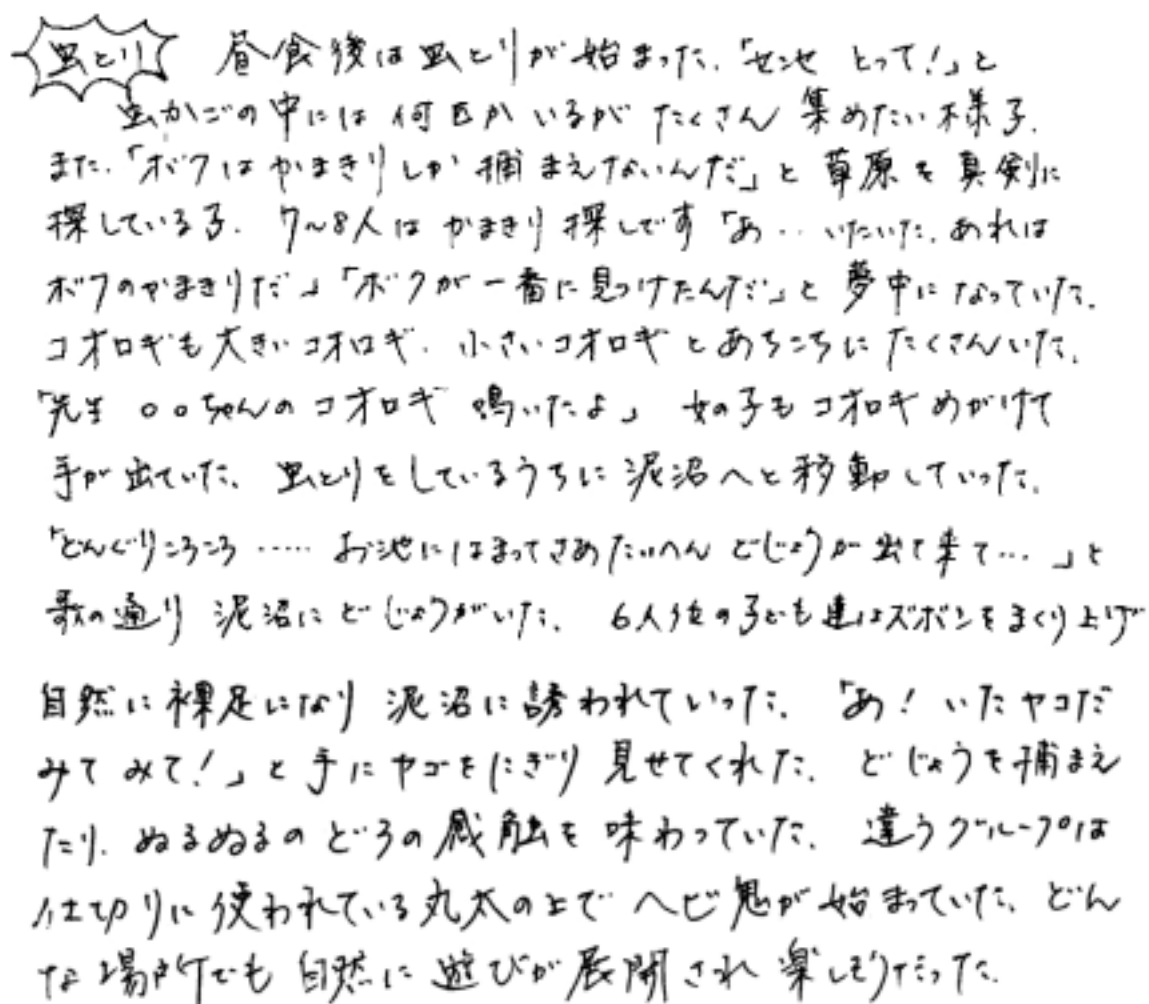 虫とり 昼食後は虫とりが始まった。「センセ とって!」と
虫かごの中には何匹かいるが たくさん 集めたい様子。
また、「ボクはかまきりしか 捕まえないんだ」と 草原を真剣に
探している子。 7~8人は かまきり探しです「あ‥いたいた。あれは
ボクのかまきりだ」「ボクが一番に見つけたんだ」と夢中になっていた。
コオロギも大きいコオロギ、小さいコオロギとあちこちにたくさんいた。
「先生 ○○ちゃんのコオロギ 鳴いたよ」 女の子もコオロギめがけて
手が出ていた。 虫とりをしているうちに 泥沼へと移動していった。
「どんぐりころころ ‥‥‥ お池にはまってさあたいへん どじょうが出て来て…」と
歌の通り 泥沼にどじょうがいた。 6人位の子ども達はズボンをまくり上げ
自然に裸足になり 泥沼に誘われていった。「あ! いたヤゴだ
みて みて!」と 手にヤゴをにぎり 見せてくれた。 どじょうを捕まえ
たり、ぬるぬるのどろの感触を味わっていた。 違うグループは
仕切りに使われている丸太の上で ヘビ鬼が始まっていた。 どん
な場所でも 自然に 遊びが展開され 楽しそうだった。